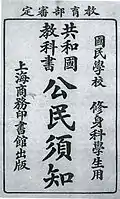 教育部審定
國民學校
修身科學生用
共和國教科書
公民須知
上海商務印書館出版